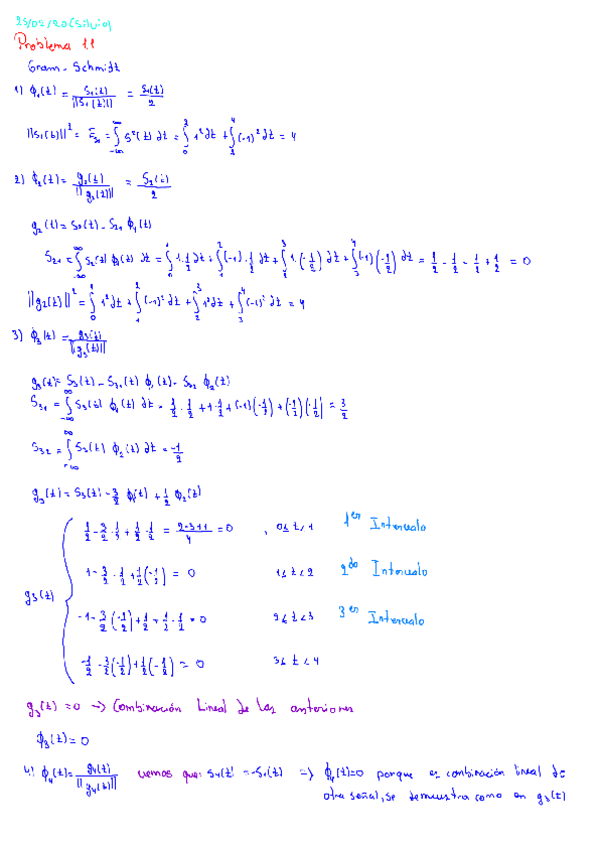 25/02/20 (Silvio)
Problema 1.1
Gram-Schmidt
1) ϕ₁(t) = S₁(t) / ||S₁(t)|| = S₁(t) / 2
||S₁(t)||² = E_S₁ = ∫_{-∞}^{∞} S²(t) dt = ∫₀² 1² dt + ∫₂⁴ (-1)² dt = 4
2) ϕ₂(t) = g₂(t) / ||g₂(t)|| = S₂(t) / 2
g₂(t) = S₂(t) - S₂₁ ϕ₁(t)
S₂₁ = ∫_{-∞}^{∞} S₂(t) ϕ₁(t) dt = ∫₀¹ 1·1/2 dt + ∫₁² (-1)·1/2 dt + ∫₂³ 1·(-1/2) dt + ∫₃⁴ (-1)(-1/2) dt = 1/2 - 1/2 - 1/2 + 1/2 = 0
||g₂(t)||² = ∫₀¹ 1² dt + ∫₁² (-1)² dt + ∫₂³ 1² dt + ∫₃⁴ (-1)² dt = 4
3) ϕ₃(t) = g₃(t) / ||g₃(t)||
g₃(t) = S₃(t) - S₃₁(t) ϕ₁(t) - S₃₂ ϕ₂(t)
S₃₁ = ∫_{-∞}^{∞} S₃(t) ϕ₁(t) dt = 1/2·1/2 + 1·1/2 + (-1)(-1/2) + (-1/2)(-1/2) = 3/2
S₃₂ = ∫_{-∞}^{∞} S₃(t) ϕ₂(t) dt = -1/2
g₃(t) = S₃(t) - 3/2 ϕ₁(t) + 1/2 ϕ₂(t)
1/2 - 3/2·1/2 + 1/2·1/2 = (2-3+1)/4 = 0 , 0≤t<1 1er Intervalo
1 - 3/2·1/2 + 1/2(-1/2) = 0 1≤t<2 2do Intervalo
g₃(t)
-1 - 3/2(-1/2) + 1/2·1/2 = 0 2≤t<3 3er Intervalo
-1/2 - 3/2(-1/2) + 1/2(-1/2) = 0 3≤t<4
g₃(t) = 0 → Combinación Lineal de las anteriores
ϕ₃(t) = 0
4) ϕ₄(t) = g₄(t) / ||g₄(t)|| vemos que: S₄(t) = -S₁(t) ⇒ ϕ₄(t)=0 porque es combinación lineal de
otra señal, se demuestra como en g₃(t)